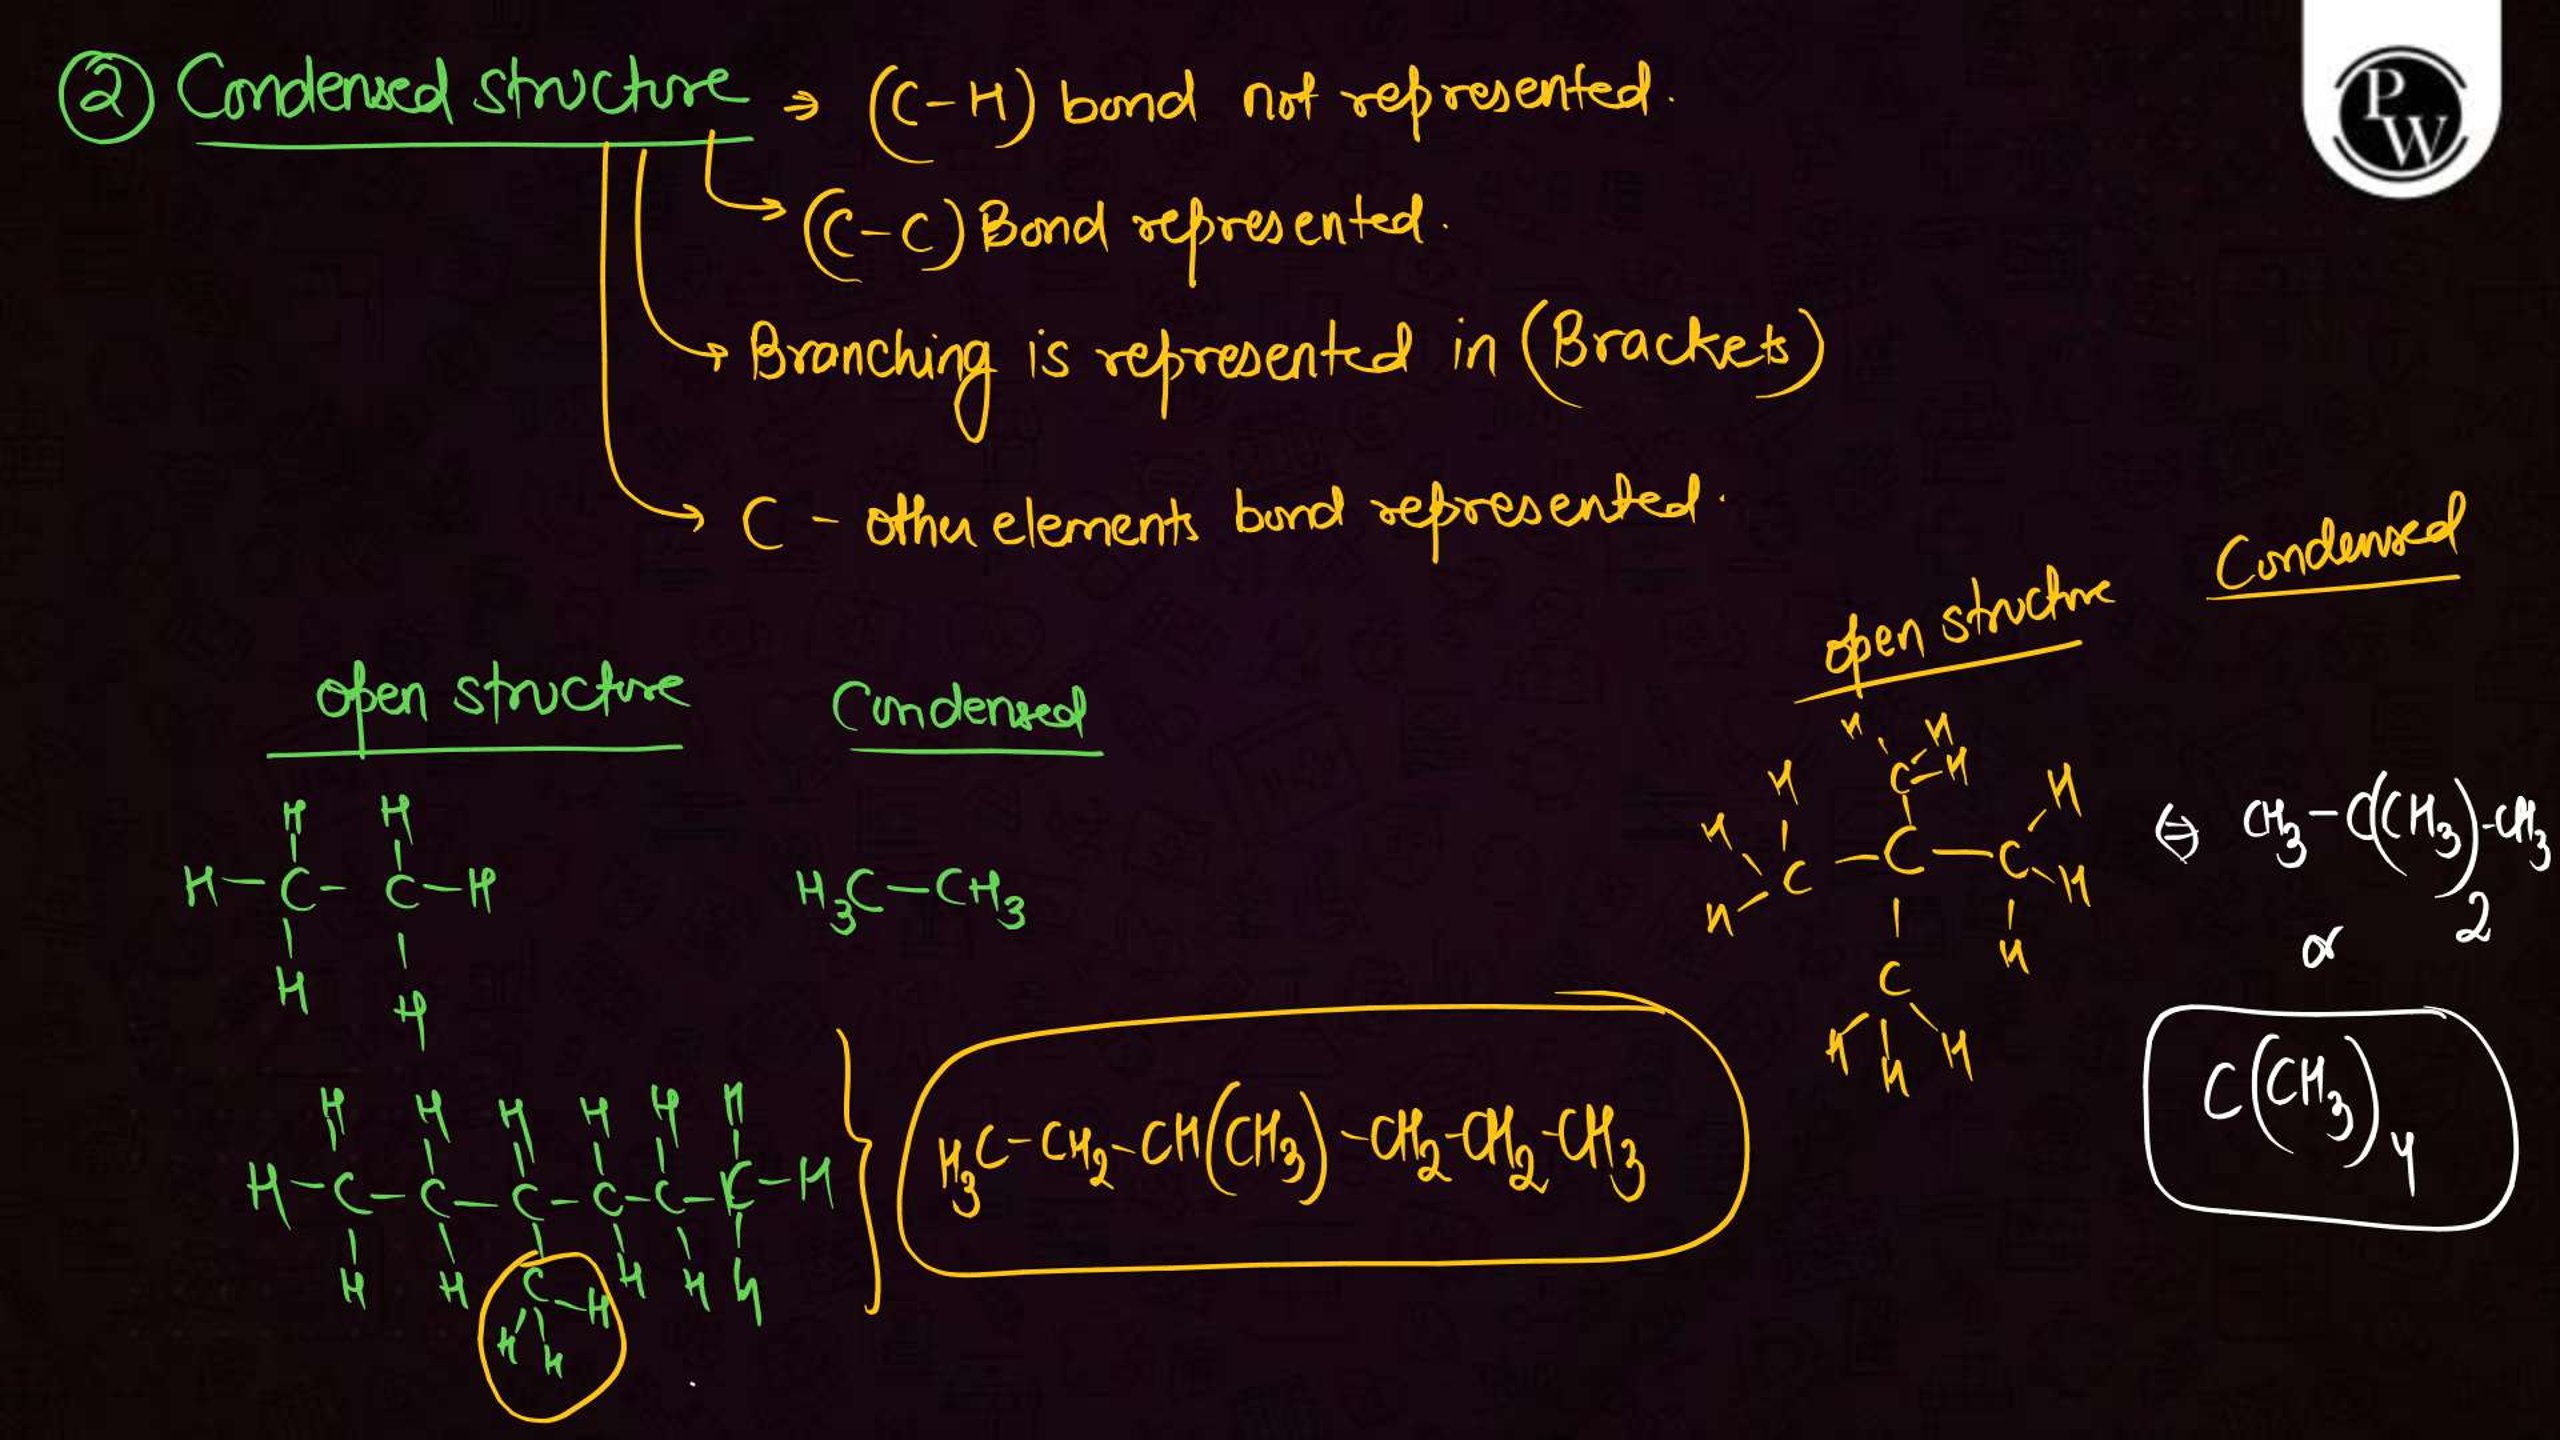 ② Condensed structure ⇒ (C-H) bond not represented.
→ (C-C) Bond represented.
→ Branching is represented in (Brackets)
→ C - other elements bond represented.
open structure Condensed
open structure Condensed
H H
H-C-C-H
H H
H₃C-CH₃
H H H H H H
H-C-C-C-C-C-C-H
H H C H H H
H H H
H₃C-CH₂-CH(CH₃)-CH₂-CH₂-CH₃
H H
H C-H H
H
C-C-C
H H
C H
H H H
⇔ CH₃-C(CH₃)₂-CH₃
or
C(CH₃)₄
PW